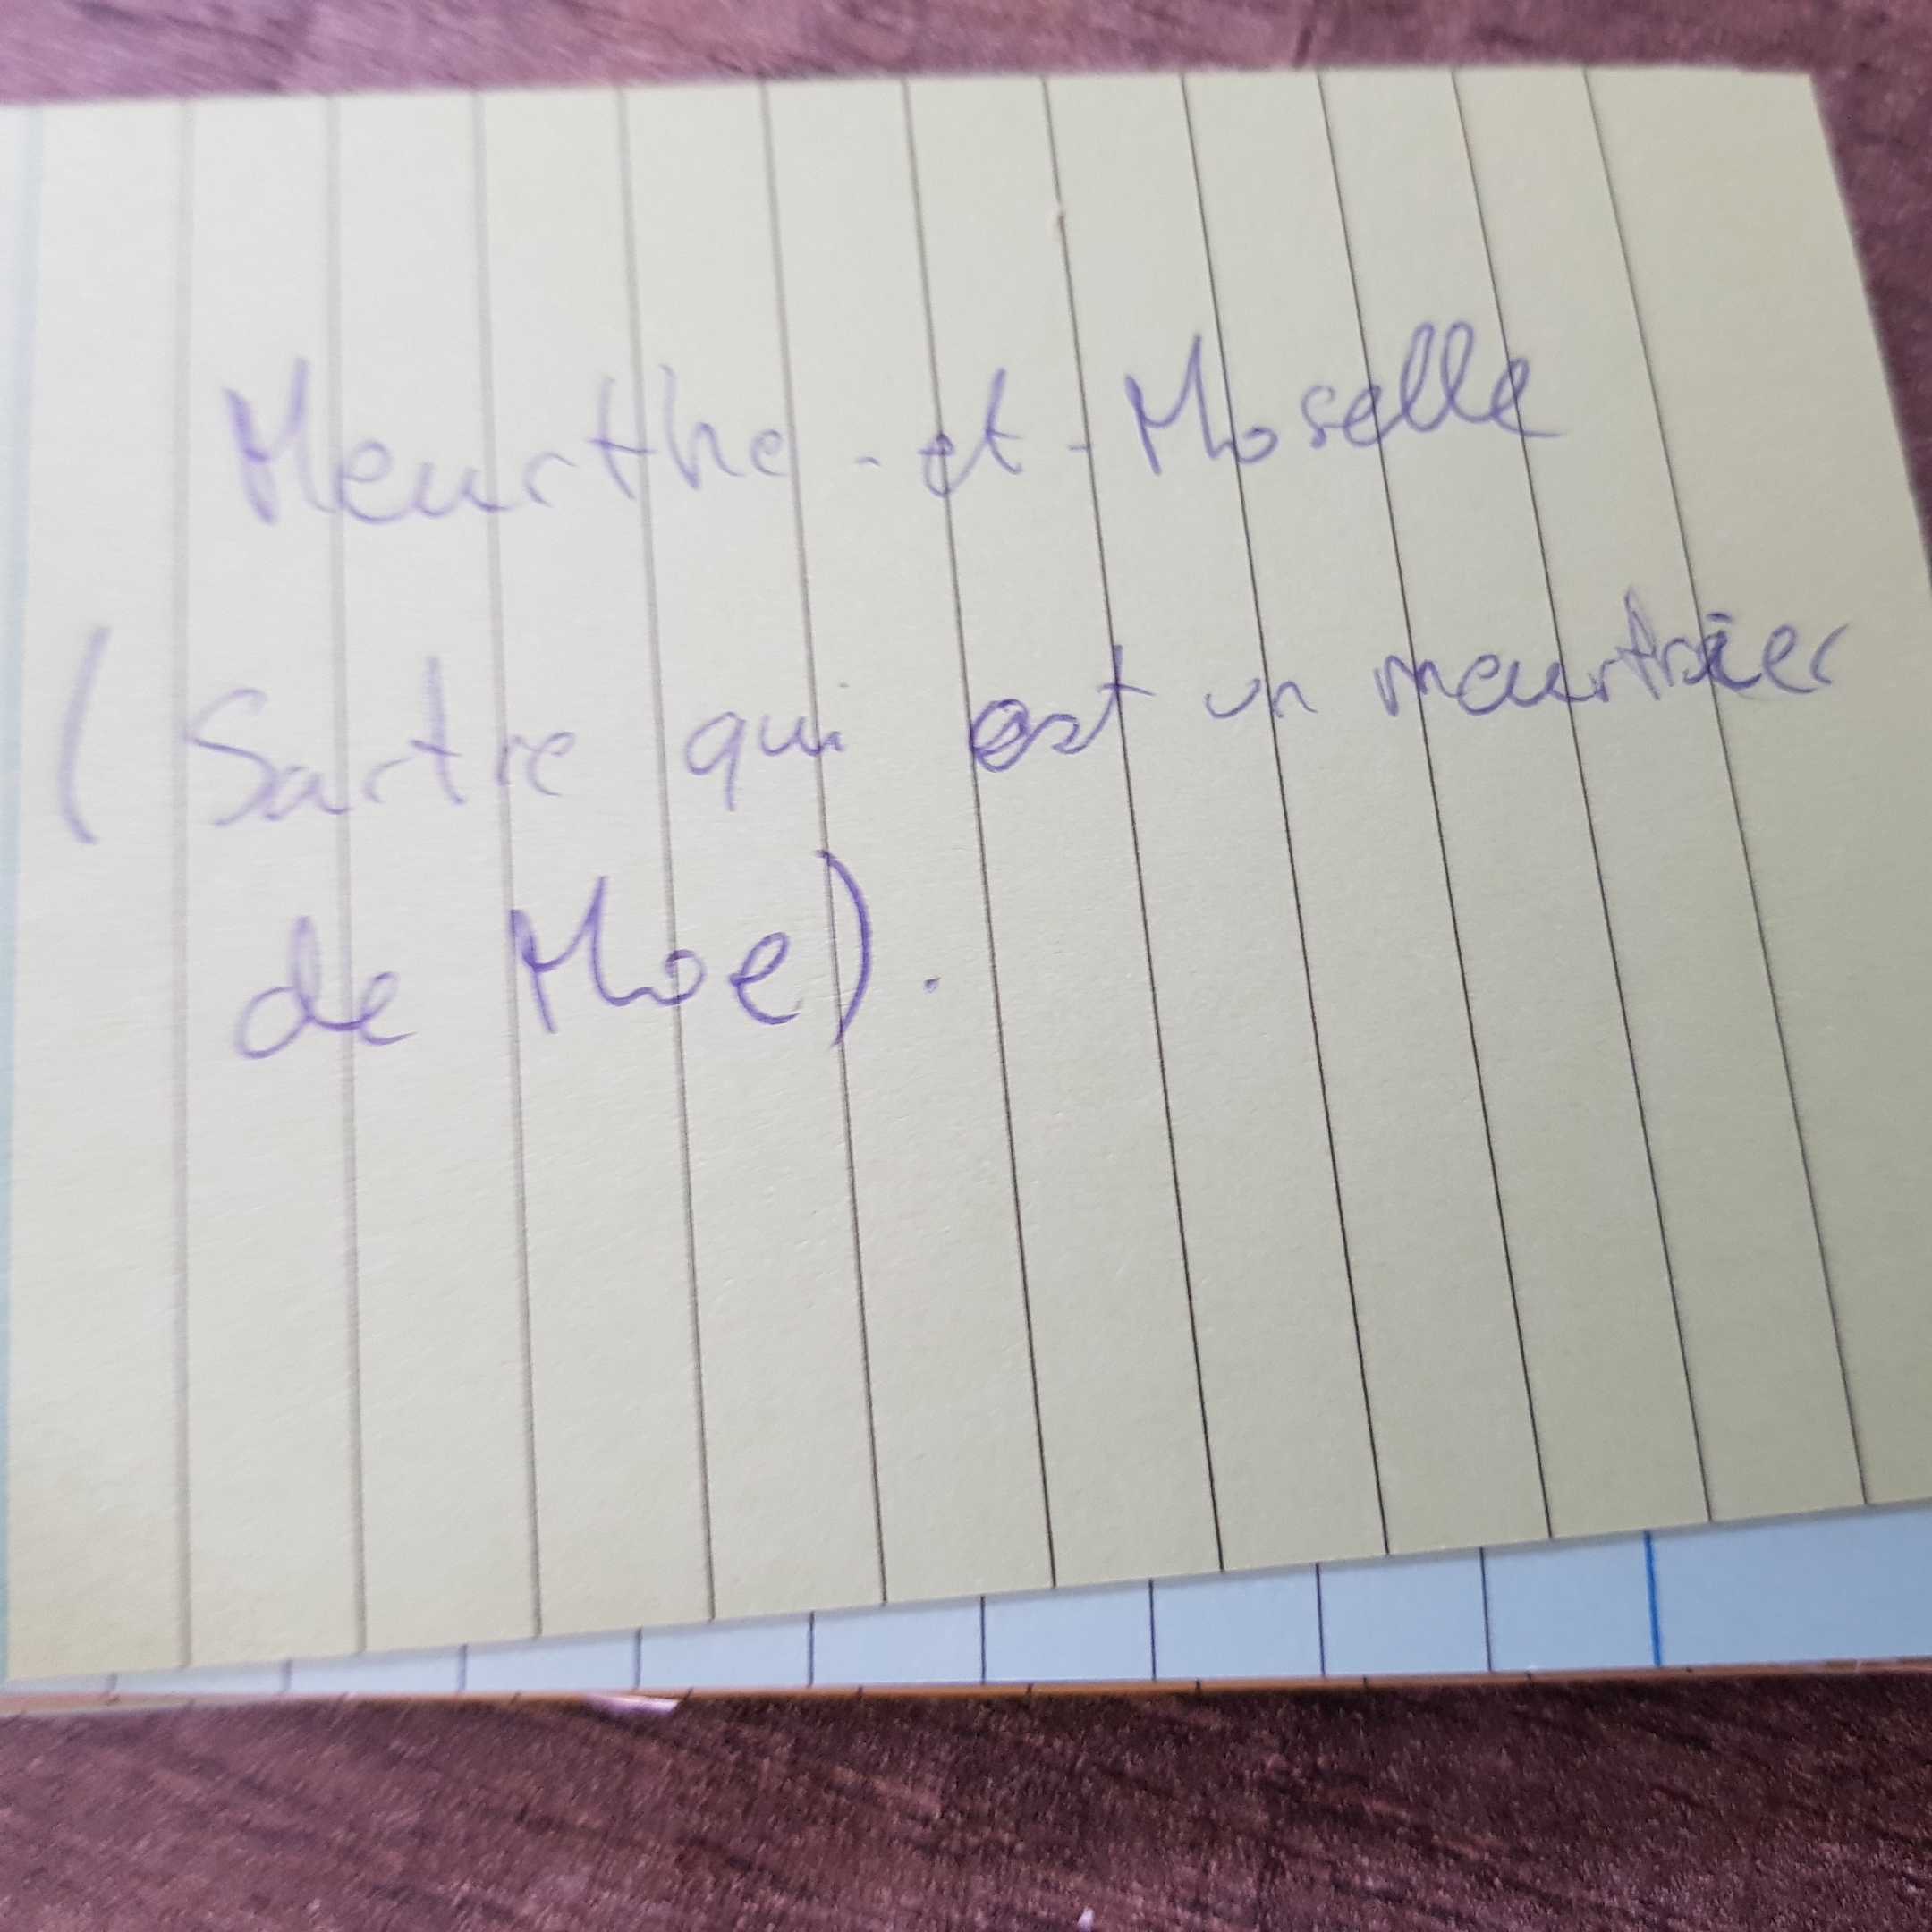 Meurthe-et-Moselle
(Sartre qui est un meurtrier
de Moe).